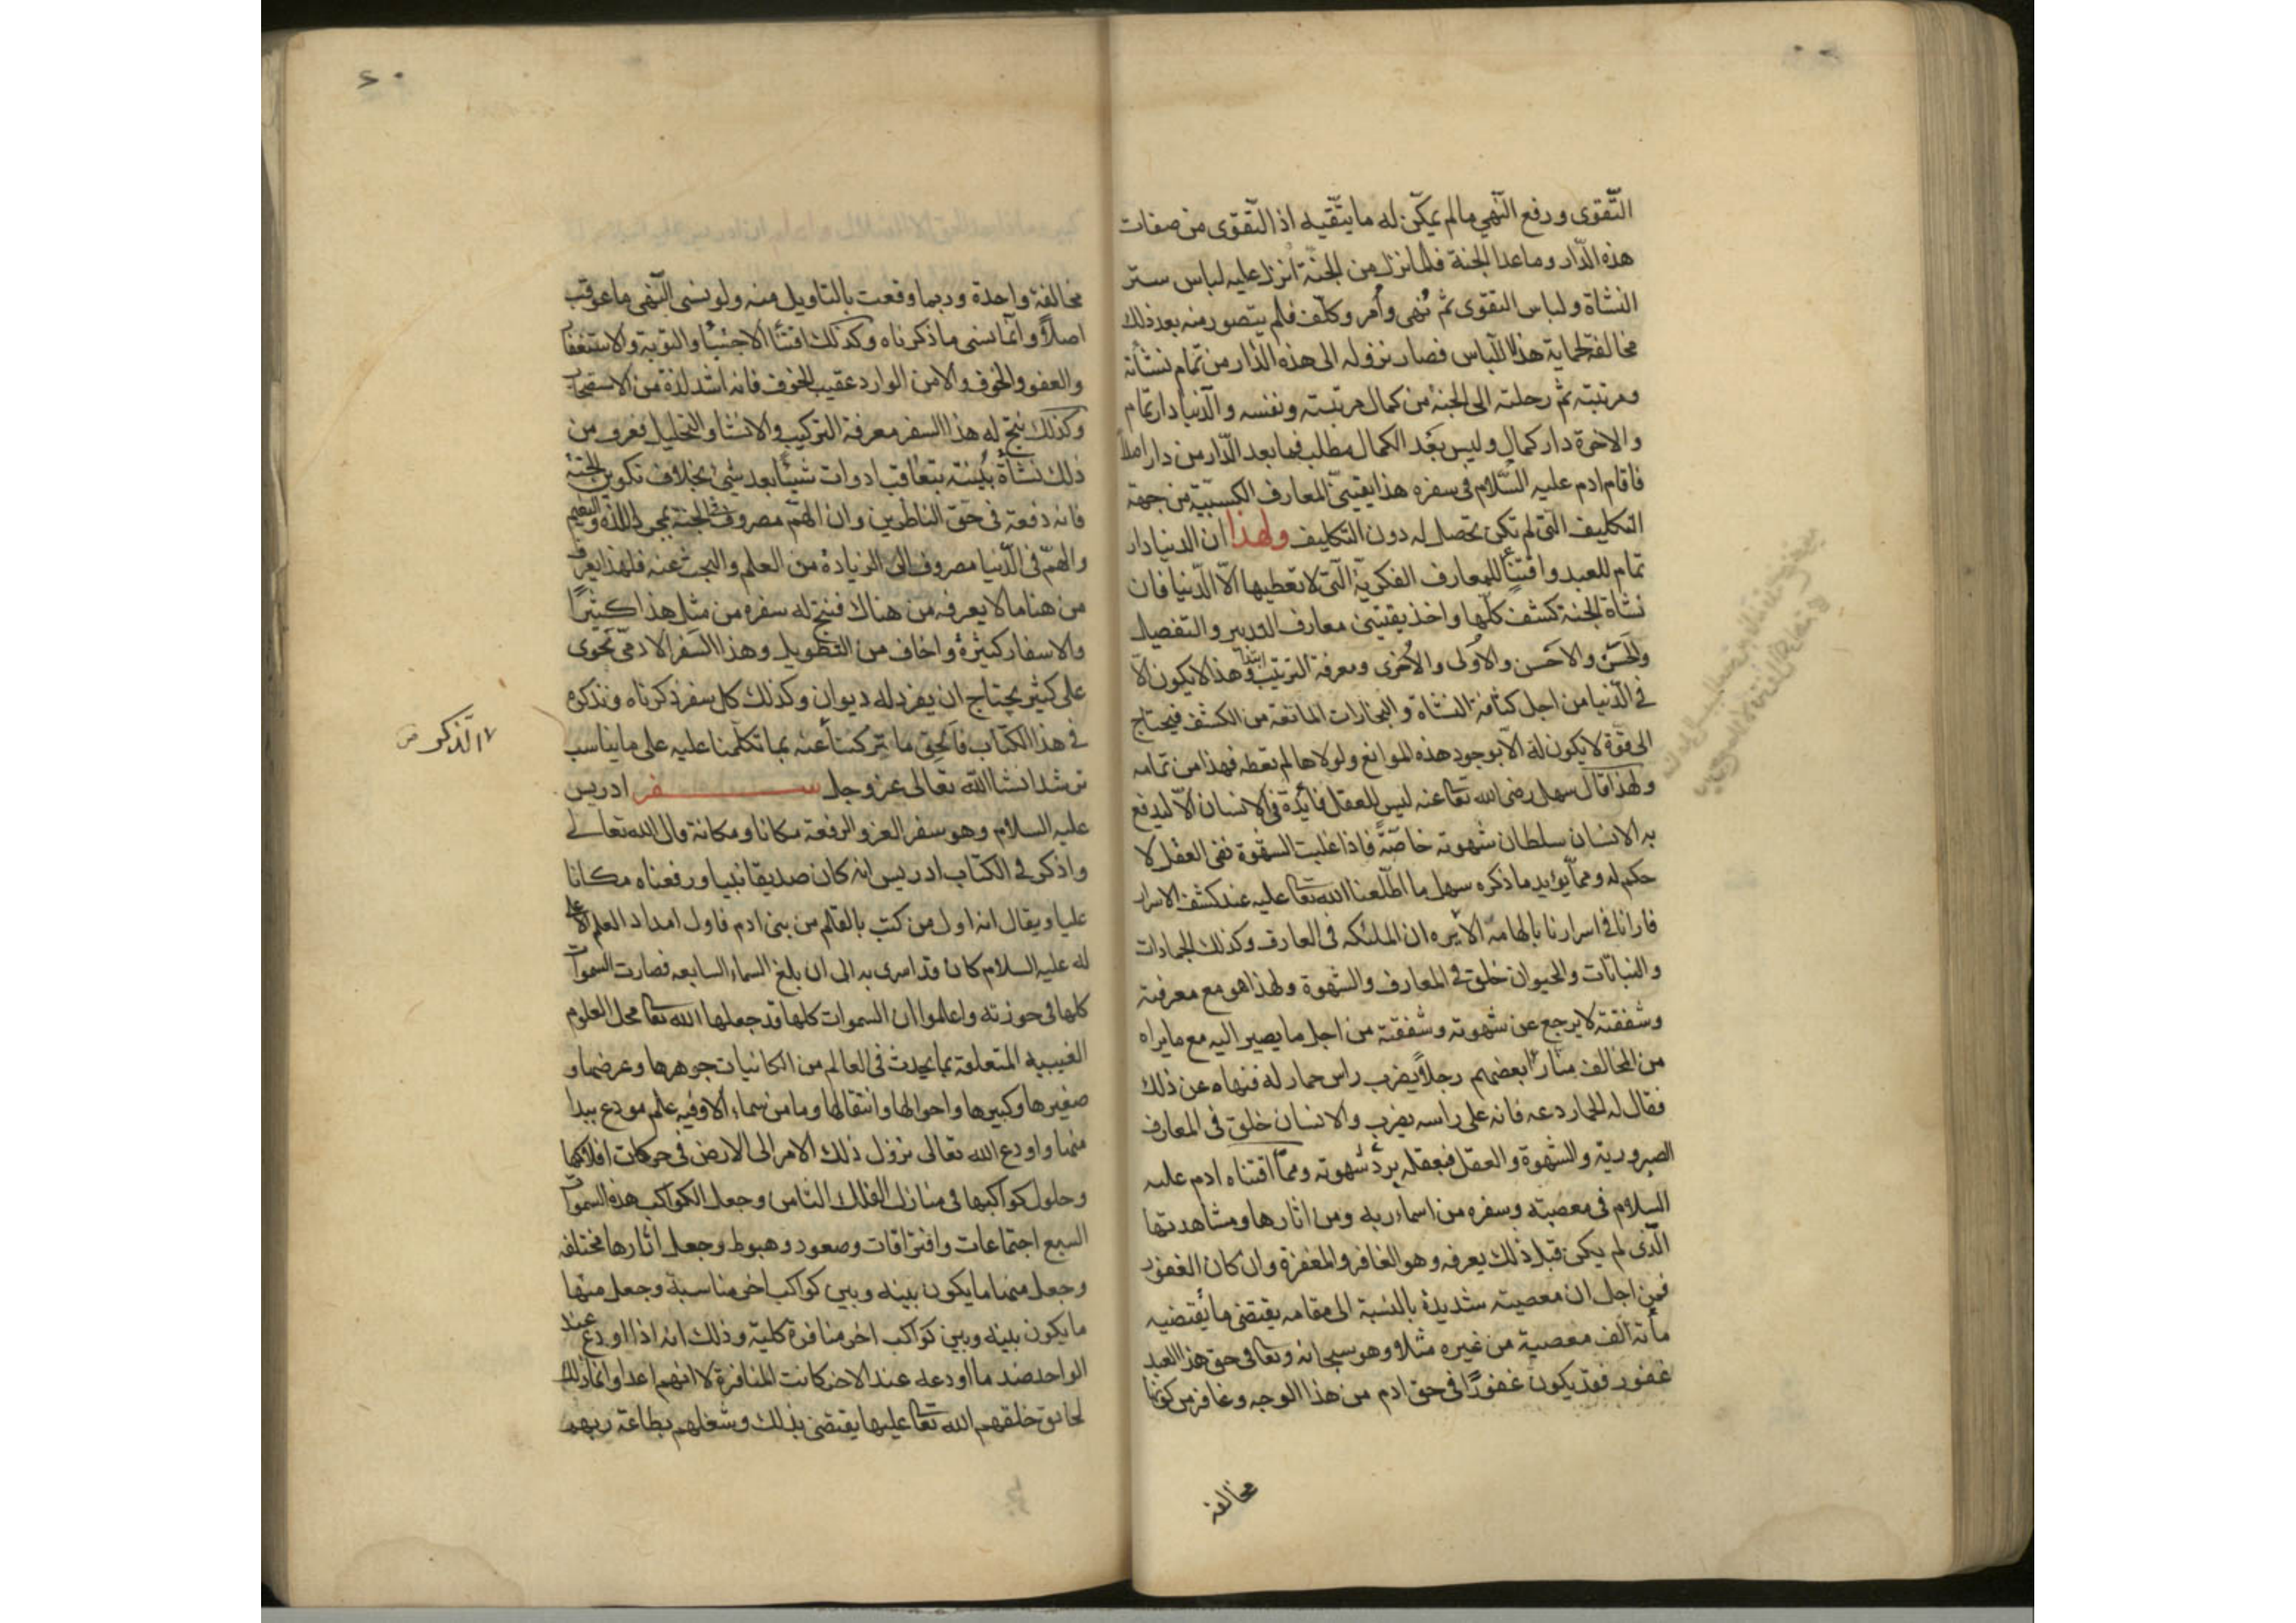 التّقوى ورفع النّهي مالم يمكن له ما يتّقيه اذ التّقوى من صفات
هذه الدّار وما عدا الجنة فلما نزل من الجنّة انزل عليه لباس ستر
النشاة ولباس التقوى ثم نُهى وأمر وكلّف فلم يتصور منه بعد ذلك
مخالفة لحماية هذا اللّباس فصار نزوله الى هذه الدّار من تمام نشأته
ومرتبته ثمّ رحلته الى الجنة من كمال مرتبته ونفسه والدّنيا دار تمام
والاخرة دار كمال وليس بَعْد الكمال مطلب فما بعد الدّار من دار اصلاً
فاقام ادم عليه السّلام فى سفره هذا يقتنى المعارف الكسبيّة من جهة
التكليف الّتى لم تكن تحصل له دون التكليف ولهذا ان الدنيا دار
تمام للعبد واقتنأ للمعارف الفكريّة الّتى لا تعطيها الّا الدّنيا فان
نشاة الجنة كشف كلّها واخذ يقتنى معارف التدبير والتفصيل
والحَسَن والاحَسن والاَولى والاُخرى ومعرفة الترتيب وهذا لا يكون الّا
فى الدّنيا من اجل كثافة النشاة والبخارات المانعة من الكشف فيحتاج
الى قوّة لا يكون له الّا بوجود هذه الموانع ولولاها لم تعطه فهذا من تمامه
ولهذا قال سهل رضى الله تعا عنه ليس للعقل فائدة فى الانسان الّا ليدفع
به الانسان سلطان شهوته خاصّة فاذا غلبت الشهوة نفى العقل لا
حكم له وممّا يؤيد ما ذكره سهل ما اطّلعنا الله تعا عليه عند كشف الاسرار
فارانا فى اسرارنا بالهامه ان الملئكه فى المعارف وكذلك الجمادات
والنباتات والحيوان خلق فى المعارف والشهوة ولهذا هو مع معرفته
وشفقته لا يرجع عن شهوته وشفقته من اجل ما يصير اليه مع ما يراه
من المخالف منّا رأ بعضهم رجلاً يضرب راس حمار له فنهاه عن ذلك
فقال له الحمار دعه فانه على راسه يضرب والانسان خلق فى المعارف
الضرورية والشّهوة والعقل فبعقله يردّ شهوته وممّا اقتناه ادم عليه
السلام فى معصيته وسفره من اسماء ربه ومن اثارها ومشاهدتها
الّذى لم يكن قبل ذلك يعرفه وهو الغافر والمغفرة وان كان الغفور
فمن اجل ان معصيته شديدة بالنسبة الى مقامه يقتضى ما يقتضيه
مأته الف معصية من غيره مثلا وهو سبحانه وتعا فى حق هذا العبد
غفور فقد يكون غفورًا فى حق ادم من هذا الوجه وغافر من كونها
مخالفة
٤٠
مخالفة واحدة وربما وقعت بالتاويل منه ولو نسى النّهى ما عوقب
اصلاً وانّما نسى ما ذكرناه وكذلك اقتنأ الاجتبأ والتوبة والاستغفار
والعفو والخوف والامن الوارد عقيب الخوف فانه اشد لذة من الاستصحاب
وكذلك ينتج له هذا السفر معرفة التركيب والانشا والتحليل فعرف من
ذلك نشأة بنيته بتعاقب ادوات شيئًا بعد شئ بخلاف تكوين الجنة
فانه دفعة فى حق الناظرين وان الهمّ مصروف فى الجنة لمجرد اللذة والنعيم
والهمّ فى الدّنيا مصروف الى الزيادة من العلم والبحث عنه فلهذا يعرف
من هنا ما لا يعرفه من هناك فنتج له سفره من مثل هذا كثيرًا
والاسفار كثيرة واخاف من التطويل وهذا السّفر الادمىّ يحوى
على كثير يحتاج ان يفرد له ديوان وكذلك كل سفر ذكرناه ونذكره
فى هذا الكتاب فالحق ما تركتأ عنه بما تكلّمنا عليه على ما يناسب
الذكر
ترشد انشا الله تعالى عزوجل سفر ادريس
عليه السلام وهو سفر العز والرفعة مكانا ومكانة قال الله تعالى
واذكر فى الكتاب ادريس انه كان صديقا نبيا ورفعناه مكانا
عليا ويقال انه اول من كتب بالقلم من بنى ادم فاول امداد العلم الاعلى
له عليه السلام كان قد اسرى به الى ان بلغ السماء السابعه فصارت السموات
كلها فى حوزته واعلموا ان السموات كلها قد جعلها الله تعا محل العلوم
الغيبيه المتعلقة بما يحدث فى العالم من الكائنات جوهرها وعرضها و
صغيرها وكبيرها واحوالها وانتقالها وما من سماء الا وفيه علم مودع بيدا
منها واودع الله تعالى نزول ذلك الامر الى الارض فى حركات افلاكها
وحلول كواكبها فى منازل الفلك الثامن وجعل الكواكب هذه السموات
السبع اجتماعات وافتراقات وصعود وهبوط وجعل اثارها مختلفه
وجعل منها ما يكون بينه وبين كواكب اخر مناسبة وجعل منها
ما يكون بينه وبين كواكب اخر منافرة كلية وذلك انه اذا اودع عند
الواحد ضد ما اودعه عند الاخر كانت المنافرة لا انهم اعدا وانما ذلك
لحائق خلقهم الله تعا عليها يقتضى بذلك وشغلهم بطاعة ربهم